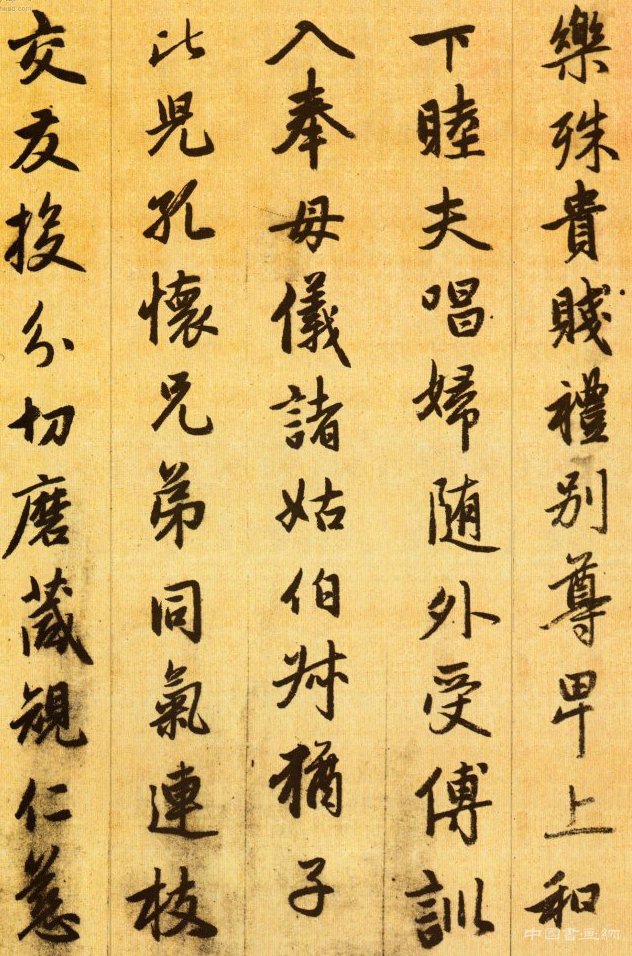 樂殊貴賤禮別尊卑上和
下睦夫唱婦随外受傅訓
入奉母儀諸姑伯叔猶子
比兒孔懷兄弟同氣連枝
交友投分切磨箴規仁慈
中国書画网